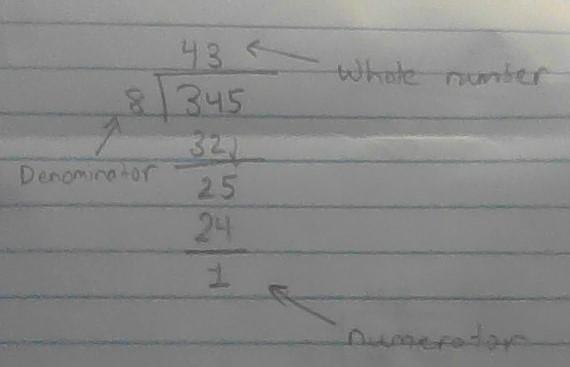 43
Whole number
8 345
32
Denominator
25
24
1
numerator